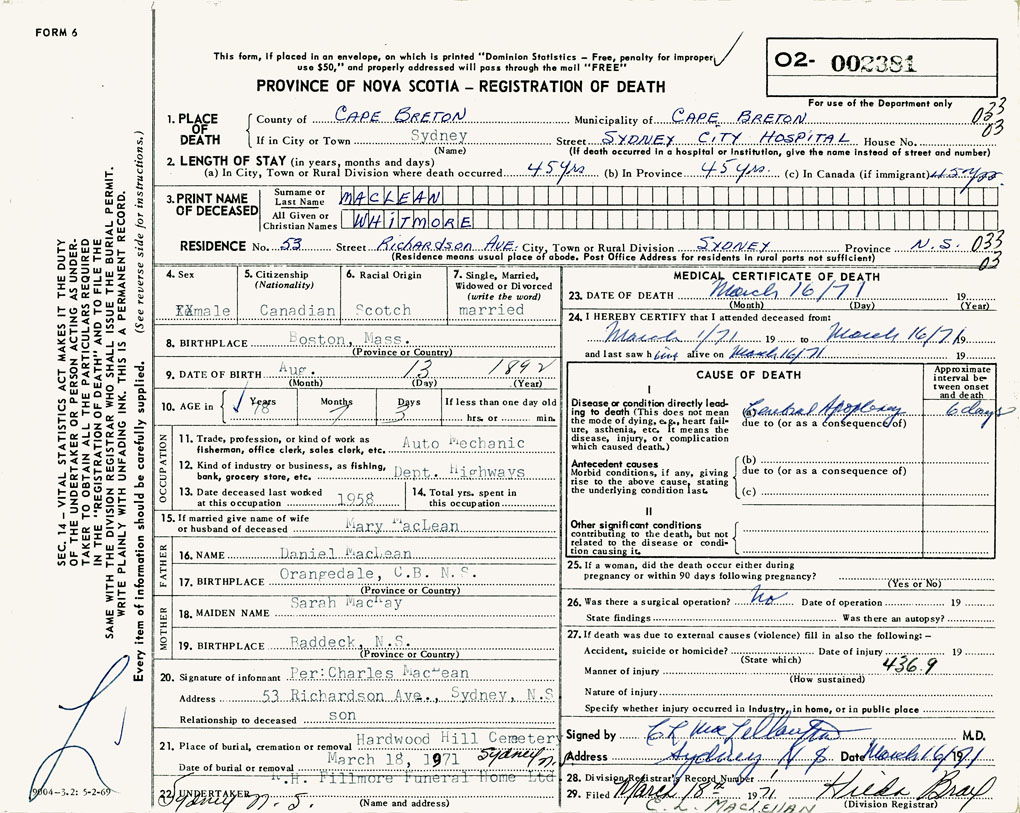 FORM 6
This form, if placed in an envelope, on which is printed "Dominion Statistics – Free, penalty for improper
use $50," and properly addressed will pass through the mail "FREE"
O2- 002381
For use of the Department only
PROVINCE OF NOVA SCOTIA – REGISTRATION OF DEATH
1. PLACE OF DEATH
County of CAPE BRETON Municipality of CAPE BRETON 033
If in City or Town Sydney Street SYDNEY CITY HOSPITAL House No. 03
(Name) (If death occurred in a hospital or institution, give the name instead of street and number)
2. LENGTH OF STAY (in years, months and days)
(a) In City, Town or Rural Division where death occurred 45 yrs (b) In Province 45 yrs. (c) In Canada (if immigrant) 45 yrs.
3. PRINT NAME OF DECEASED
Surname or Last Name MACLEAN
All Given or Christian Names WHITMORE
RESIDENCE No. 53 Street Richardson AVE. City, Town or Rural Division SYDNEY Province N.S. 033
(Residence means usual place of abode. Post Office Address for residents in rural ports not sufficient) 03
4. Sex 5. Citizenship (Nationality) 6. Racial Origin 7. Single, Married, Widowed or Divorced (write the word)
male Canadian Scotch married
8. BIRTHPLACE Boston, Mass.
(Province or Country)
9. DATE OF BIRTH Aug. 13 1892
(Month) (Day) (Year)
10. AGE in Years Months Days If less than one day old
78 7 3 hrs. or min.
OCCUPATION
11. Trade, profession, or kind of work as fisherman, office clerk, sales clerk, etc. Auto Mechanic
12. Kind of industry or business, as fishing, bank, grocery store, etc. Dept. Highways
13. Date deceased last worked at this occupation 1958 14. Total yrs. spent in this occupation
15. If married give name of wife or husband of deceased Mary MacLean
FATHER
16. NAME Daniel MacLean
17. BIRTHPLACE Orangedale, C.B. N.S.
(Province or Country)
MOTHER
18. MAIDEN NAME Sarah MacKay
19. BIRTHPLACE Baddeck, N.S.
(Province or Country)
20. Signature of informant Per: Charles MacLean
Address 53 Richardson Ave., Sydney, N.S
Relationship to deceased son
21. Place of burial, cremation or removal Hardwood Hill Cemetery
Sydney N.
Date of burial or removal March 18, 1971
22. UNDERTAKER .H. Fillmore Funeral Home Ltd
Sydney N.S. (Name and address)
MEDICAL CERTIFICATE OF DEATH
23. DATE OF DEATH March 16/71 19
(Month) (Day) (Year)
24. I HEREBY CERTIFY that I attended deceased from:
March 1/71 19 to March 16/71 19
and last saw him alive on March 16/71 19
CAUSE OF DEATH
Approximate interval between onset and death
I
Disease or condition directly leading to death (This does not mean the mode of dying, e.g., heart failure, asthenia, etc. It means the disease, injury, or complication which caused death.)
(a) Cerebral Apoplexy 6 days
due to (or as a consequence of)
Antecedent causes
Morbid conditions, if any, giving rise to the above cause, stating the underlying condition last.
(b)
due to (or as a consequence of)
(c)
II
Other significant conditions
contributing to the death, but not related to the disease or condition causing it.
25. If a woman, did the death occur either during
pregnancy or within 90 days following pregnancy?
(Yes or No)
26. Was there a surgical operation? No Date of operation 19
State findings Was there an autopsy?
27. If death was due to external causes (violence) fill in also the following: –
Accident, suicide or homicide? Date of injury 19
(State which)
Manner of injury 436.9
(How sustained)
Nature of injury
Specify whether injury occurred in industry, in home, or in public place
Signed by M.D.
Address Sydney N S Date March 16/1971
28. Division Registrar's Record Number
29. Filed March 18th 1971 Hilda Bray
C. L. MACLELLAN (Division Registrar)
SEC. 14 – VITAL STATISTICS ACT MAKES IT THE DUTY
OF THE UNDERTAKER OR PERSON ACTING AS UNDER-
TAKER TO OBTAIN ALL THE PARTICULARS REQUIRED
IN THE "REGISTRATION OF DEATH" AND TO FILE THE
SAME WITH THE DIVISION REGISTRAR WHO SHALL ISSUE THE BURIAL PERMIT.
WRITE PLAINLY WITH UNFADING INK. THIS IS A PERMANENT RECORD.
Every item of information should be carefully supplied. (See reverse side for instructions.)
9004-3.2: 5-2-69